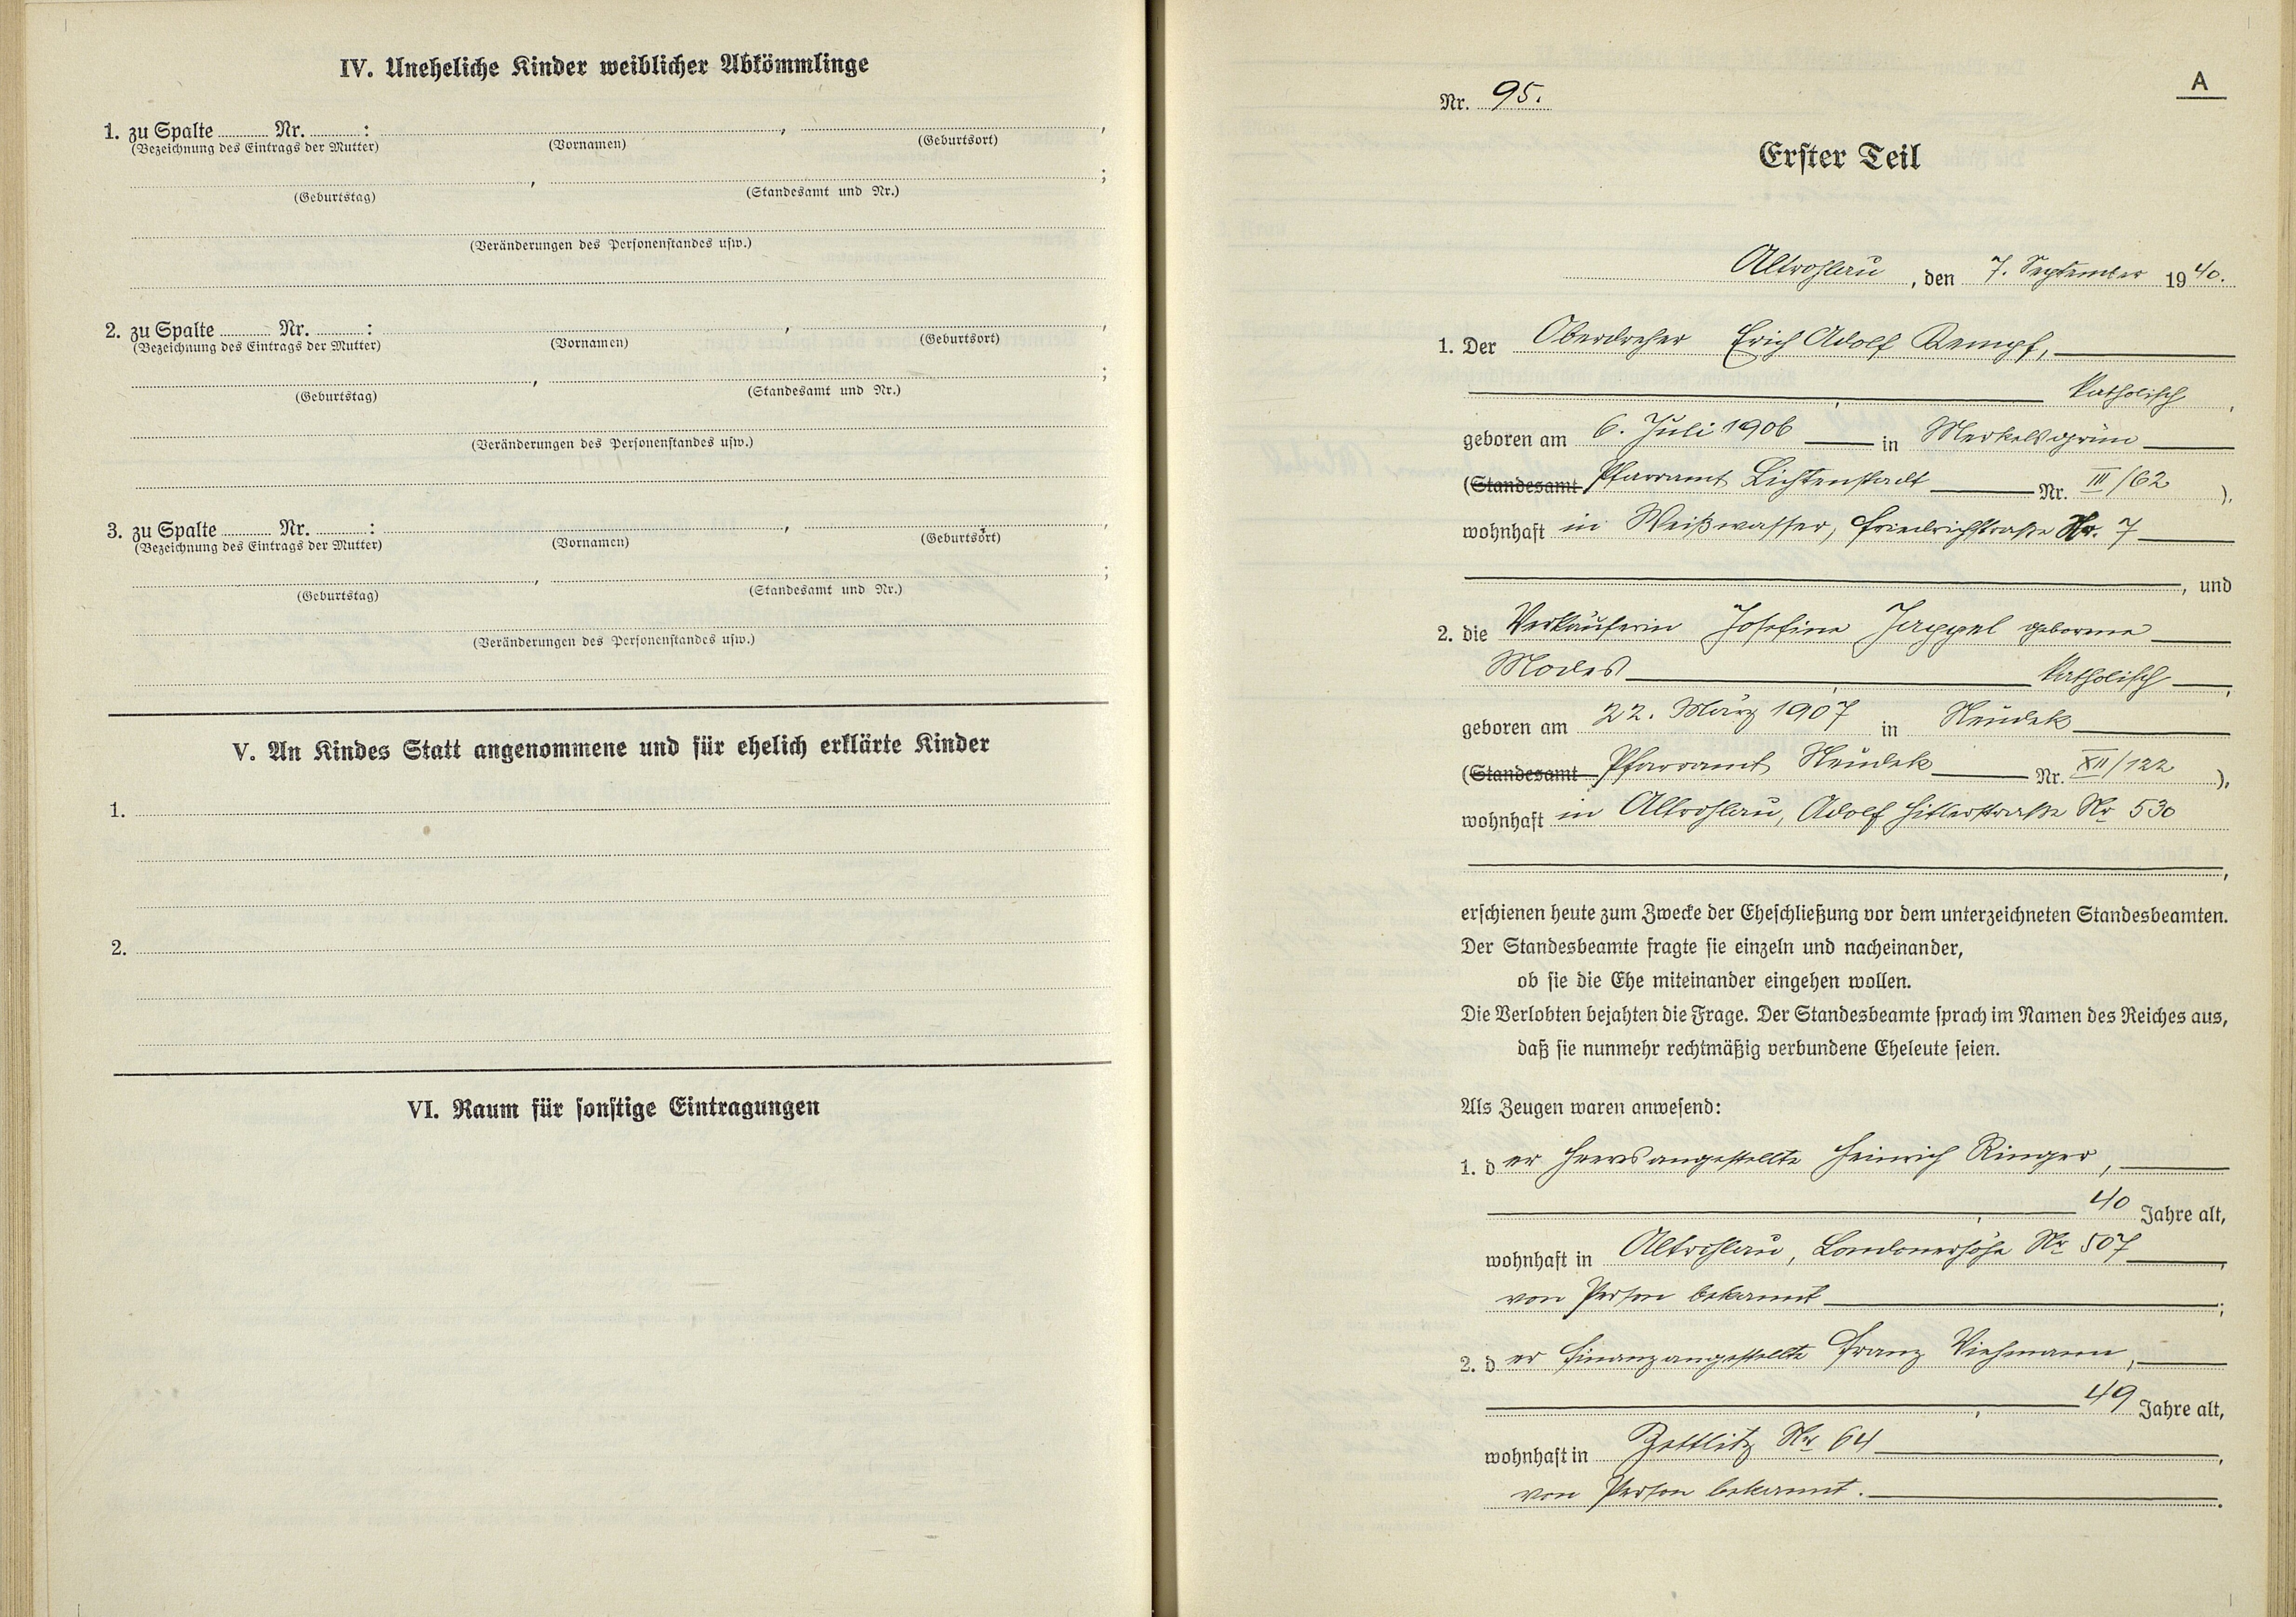 IV. Uneheliche Kinder weiblicher Abkömmlinge
1. zu Spalte Nr. : , ,
(Bezeichnung des Eintrags der Mutter) (Vornamen) (Geburtsort)
, ;
(Geburtstag) (Standesamt und Nr.)
(Veränderungen des Personenstandes usw.)
2. zu Spalte Nr. : , ,
(Bezeichnung des Eintrags der Mutter) (Vornamen) (Geburtsort)
, ;
(Geburtstag) (Standesamt und Nr.)
(Veränderungen des Personenstandes usw.)
3. zu Spalte Nr. : , ,
(Bezeichnung des Eintrags der Mutter) (Vornamen) (Geburtsort)
, ;
(Geburtstag) (Standesamt und Nr.)
(Veränderungen des Personenstandes usw.)
V. An Kindes Statt angenommene und für ehelich erklärte Kinder
1.
2.
VI. Raum für sonstige Eintragungen
A
Nr. 95.
Erster Teil
Altrohlau, den 7. September 1940.
1. Der Oberdreher Erich Adolf Rempf,
katholisch,
geboren am 6. Juli 1906 in Merkelsgrün
(Standesamt Pfarramt Lichtenstadt Nr. III/62),
wohnhaft in Weißwasser, Friedrichstraße Nr. 7
, und
2. die Verkäuferin Josefine Jeppel geborene
Modes katholisch,
geboren am 22. März 1907 in Neudek
(Standesamt Pfarramt Neudek Nr. XII/122),
wohnhaft in Altrohlau, Adolf Hitlerstraße Nr 530
,
erschienen heute zum Zwecke der Eheschließung vor dem unterzeichneten Standesbeamten.
Der Standesbeamte fragte sie einzeln und nacheinander,
ob sie die Ehe miteinander eingehen wollen.
Die Verlobten bejahten die Frage. Der Standesbeamte sprach im Namen des Reiches aus,
daß sie nunmehr rechtmäßig verbundene Eheleute seien.
Als Zeugen waren anwesend:
1. der Heeresangestellte Heinrich Ringer,
, 40 Jahre alt,
wohnhaft in Altrohlau, Londonerhöhe Nr 507,
von Person bekannt;
2. der Finanzangestellte Franz Viehmann,
, 49 Jahre alt,
wohnhaft in Zettlitz Nr 64,
von Person bekannt.